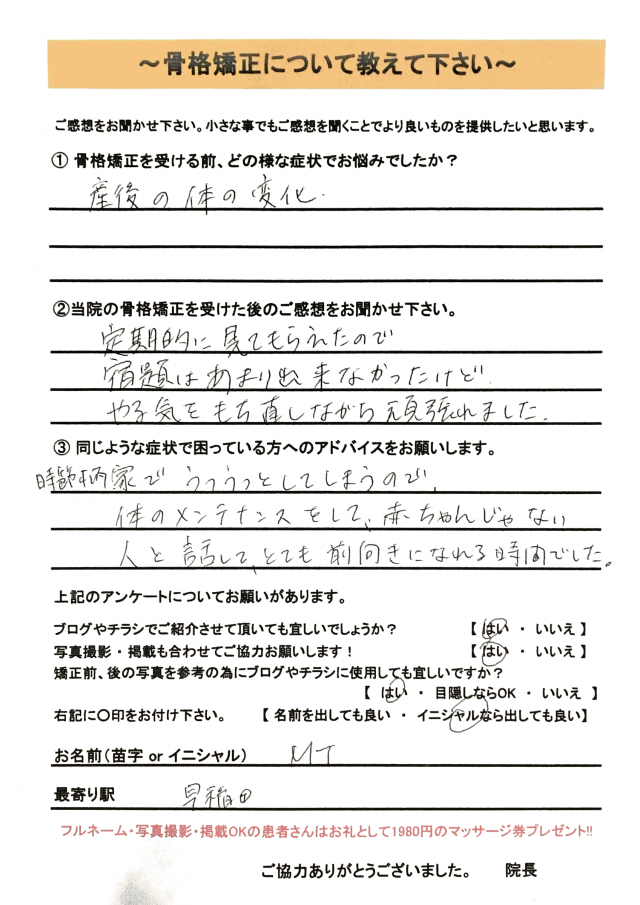 ～骨格矯正について教えて下さい～
ご感想をお聞かせ下さい。小さな事でもご感想を聞くことでより良いものを提供したいと思います。
① 骨格矯正を受ける前、どの様な症状でお悩みでしたか？
産後の体の変化.
②当院の骨格矯正を受けた後のご感想をお聞かせ下さい。
定期的に見てもらえたので
宿題はあまり出来なかったけど.
やる気をもち直しながら頑張れました.
③ 同じような症状で困っている方へのアドバイスをお願いします。
時節柄家でうつうつとしてしまうので、
体のメンテナンスをして、赤ちゃんじゃない
人と話して、とても前向きになれる時間でした。
上記のアンケートについてお願いがあります。
ブログやチラシでご紹介させて頂いても宜しいでしょうか？ 【 はい ・ いいえ 】
写真撮影・掲載も合わせてご協力お願いします！ 【 はい ・ いいえ 】
矯正前、後の写真を参考の為にブログやチラシに使用しても宜しいですか？
【 はい ・ 目隠しならOK ・ いいえ 】
右記に〇印をお付け下さい。 【 名前を出しても良い ・ イニシャルなら出しても良い】
お名前（苗字 or イニシャル） MT
最寄り駅 早稲田
フルネーム・写真撮影・掲載OKの患者さんはお礼として1980円のマッサージ券プレゼント!!
ご協力ありがとうございました。 院長